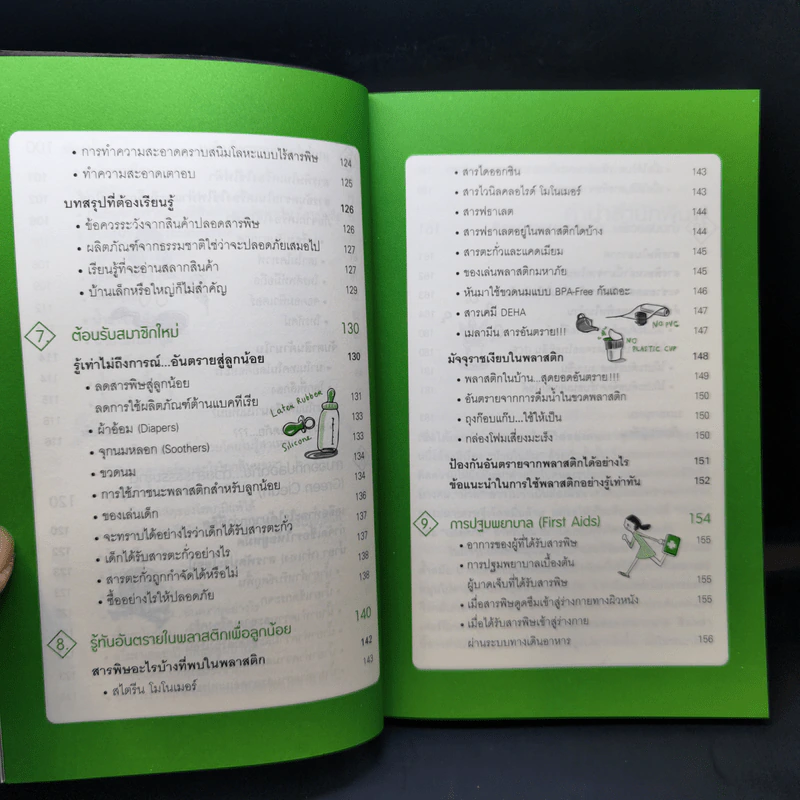 • การทำความสะอาดคราบสนิมโลหะแบบไร้สารพิษ 124
• ทำความสะอาดเตาอบ 125
บทสรุปที่ต้องเรียนรู้ 126
• ข้อควรระวังจากสินค้าปลอดสารพิษ 126
• ผลิตภัณฑ์จากธรรมชาติใช่ว่าจะปลอดภัยเสมอไป 127
• เรียนรู้ที่จะอ่านสลากสินค้า 127
• บ้านเล็กหรือใหญ่ก็ไม่สำคัญ 129
7. ต้อนรับสมาชิกใหม่ 130
รู้เท่าไม่ถึงการณ์...อันตรายสู่ลูกน้อย 130
• ลดสารพิษสู่ลูกน้อย
ลดการใช้ผลิตภัณฑ์ต้านแบคทีเรีย 131
• ผ้าอ้อม (Diapers) 133
• จุกนมหลอก (Soothers) 133
• ขวดนม 134
• การใช้ภาชนะพลาสติกสำหรับลูกน้อย 134
• ของเล่นเด็ก 136
• จะทราบได้อย่างไรว่าเด็กได้รับสารตะกั่ว 137
• เด็กได้รับสารตะกั่วอย่างไร 137
• สารตะกั่วถูกกำจัดได้หรือไม่ 138
• ซื้ออย่างไรให้ปลอดภัย 138
Latex Rubber
Silicone
8. รู้ทันอันตรายในพลาสติกเพื่อลูกน้อย 140
สารพิษอะไรบ้างที่พบในพลาสติก 142
• สไตรีน โมโนเมอร์ 143
• สารไดออกซิน 143
• สารไวนิลคลอไรด์ โมโนเมอร์ 143
• สารฟธาเลต 144
• สารฟธาเลตอยู่ในพลาสติกใดบ้าง 144
• สารตะกั่วและแคดเมียม 145
• ของเล่นพลาสติกมหาภัย 145
• หันมาใช้ขวดนมแบบ BPA-Free กันเถอะ 146
• สารเคมี DEHA 147
• เมลามีน สารอันตราย!!! 147
NO PVC
NO PLASTIC CUP
มัจจุราชเงียบในพลาสติก 148
• พลาสติกในบ้าน...สุดยอดอันตราย!!! 149
• อันตรายจากการดื่มน้ำในขวดพลาสติก 150
• ถุงก๊อบแก๊บ...ใช้ให้เป็น 150
• กล่องโฟมเสี่ยงมะเร็ง 150
ป้องกันอันตรายจากพลาสติกได้อย่างไร 151
ข้อแนะนำในการใช้พลาสติกอย่างรู้เท่าทัน 152
9. การปฐมพยาบาล (First Aids) 154
• อาการของผู้ที่ได้รับสารพิษ 155
• การปฐมพยาบาลเบื้องต้น
ผู้บาดเจ็บที่ได้รับสารพิษ 155
• เมื่อสารพิษดูดซึมเข้าสู่ร่างกายทางผิวหนัง 155
• เมื่อได้รับสารพิษเข้าสู่ร่างกาย
ผ่านระบบทางเดินอาหาร 156